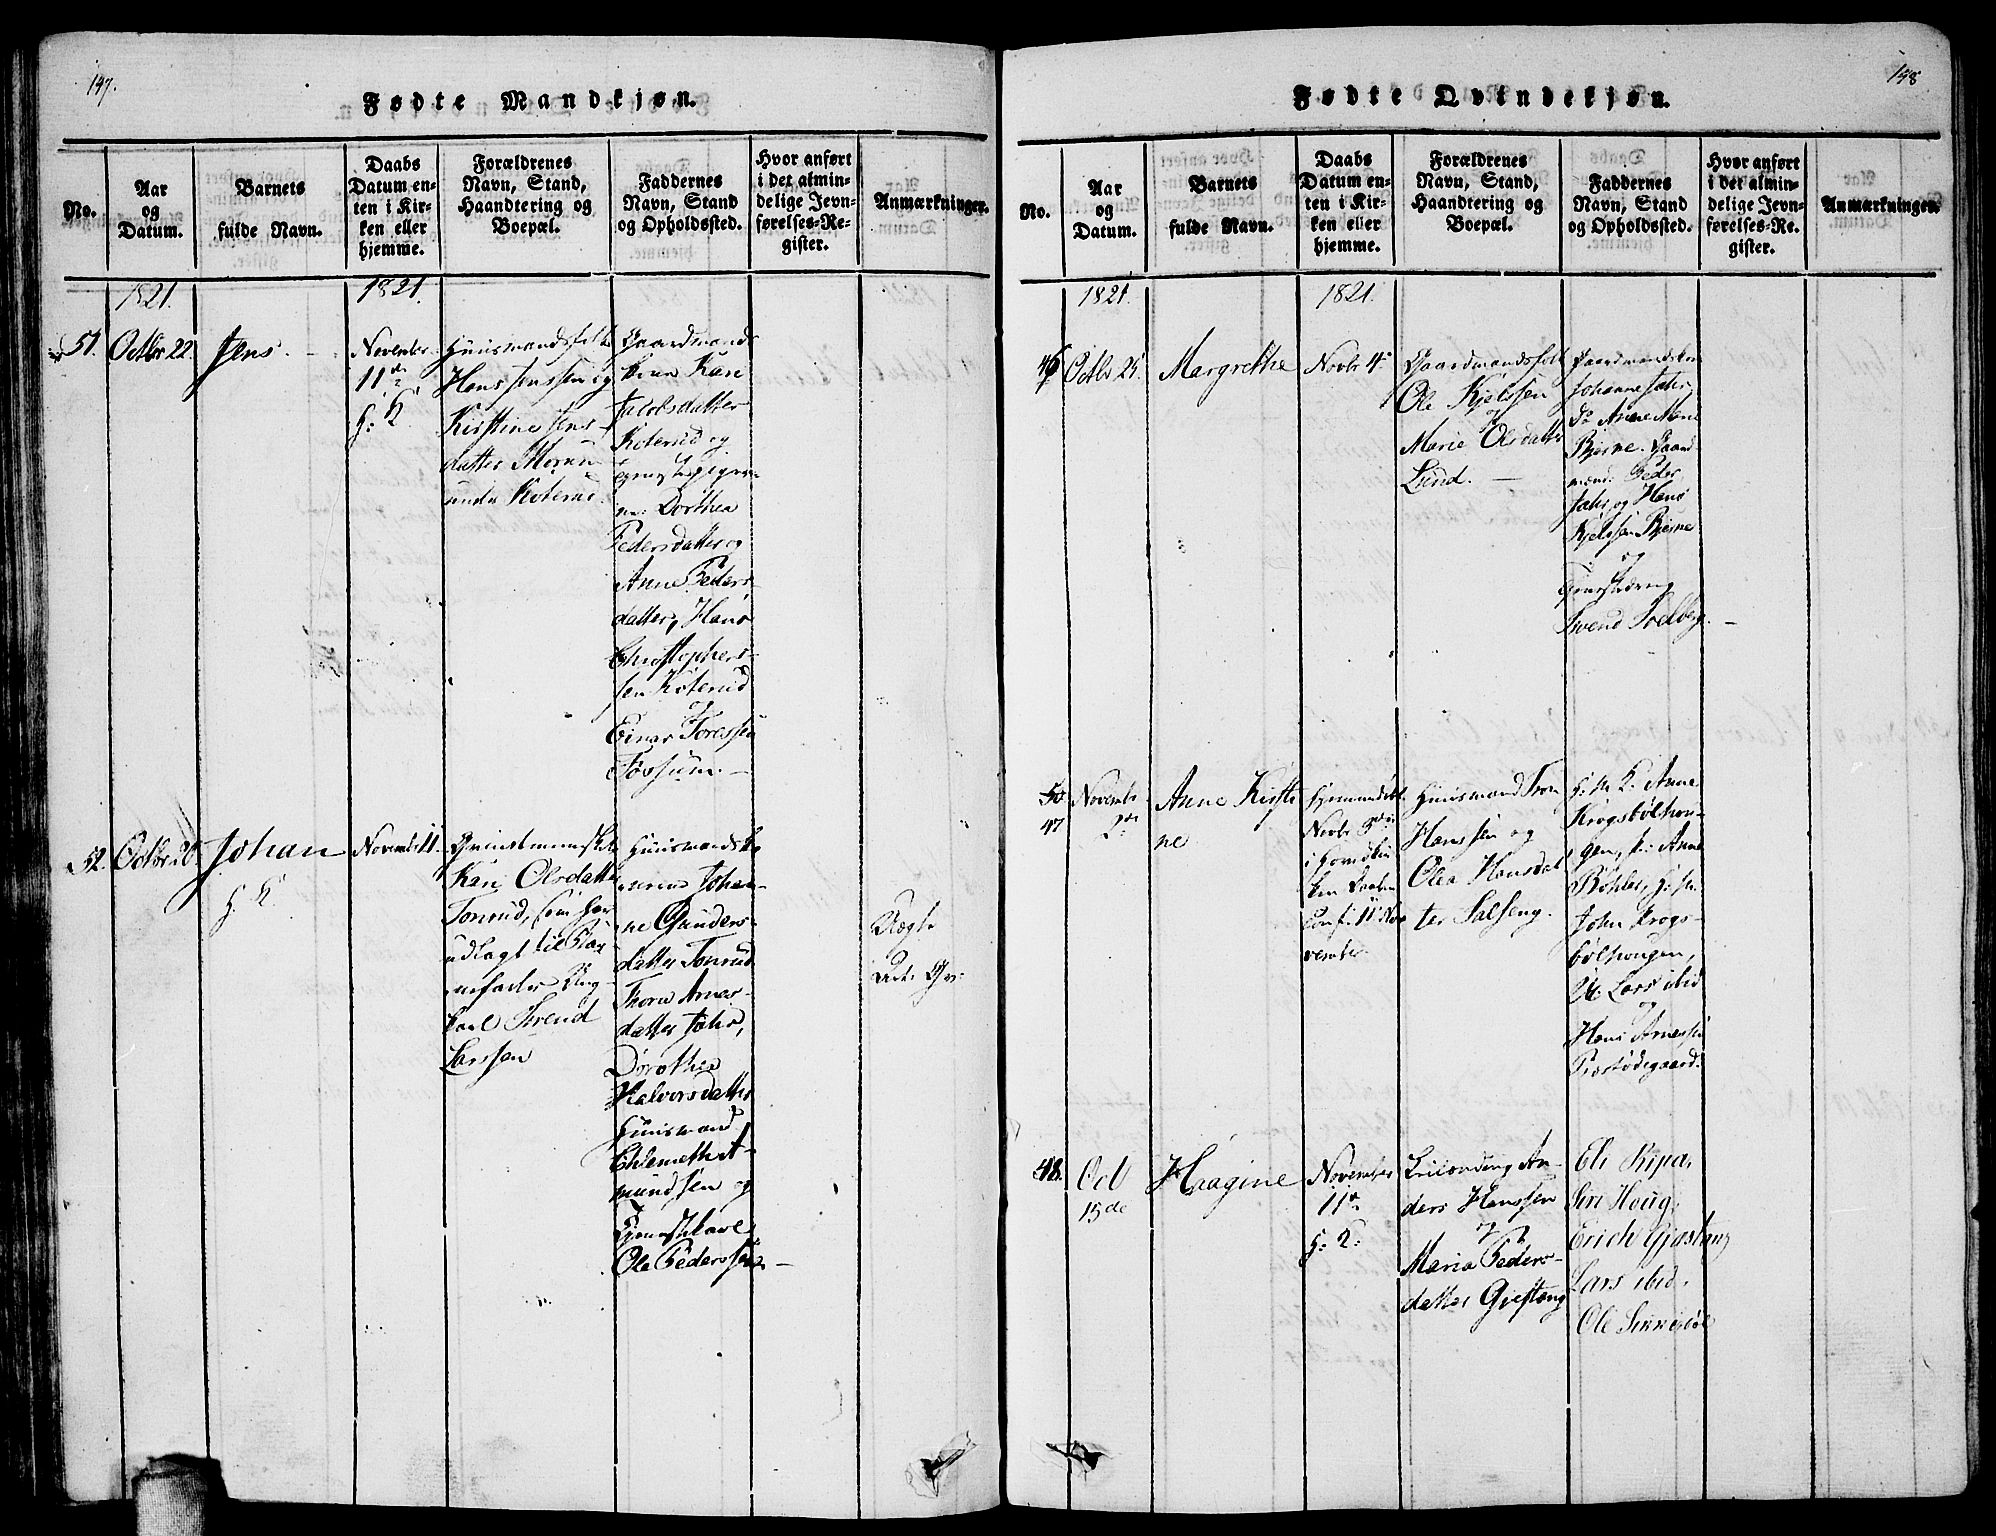 147.
Fødte Mandkjøn.
No.
Aar
og
Datum.
Barnets
fulde Navn.
Daabs
Datum en-
ten i Kir-
ken eller
hjemme.
Forældrenes
Navn, Stand,
Haandtering og
Boepæl.
Faddernes
Navn, Stand
og Opholdssted.
Hvor anført
i det almin-
delige Jevn-
førelses-Re-
gister.
Anmærkninger.
1821.
1821.
51.
Octbr 22
Jens.
November
11te
H: K.
Huusmandsfolk
Hans Jenssen og
Kirstine Jens-
datter Moren
under Koterud.
Gaardmands
kone Kari
Jacobsdatter
Koterud og
Dorthea
Pedersdatter og
Anne Peders-
datter, Hans
Christophers-
sen Koterud
og
Einar Toressen
Fossum.
52.
Octbr 20
Johan
H. K.
Novembr 11.
Kari Olsdatter
Tonrud, som har
udlagt til Bar-
nefader Ung-
karl Svend
Larssen
Huusmandsko-
nerne Johan-
ne Gunders-
datter Tonrud
Thore Arnes-
datter Jahr,
Dorothea
Halvorsdatter
Huusmand
Chlemeth A-
mundsen og
Tjenestkarl
Ole Pederssen
Uægte
148
Fødte Qvindekjøn.
No.
Aar
og
Datum.
Barnets
fulde Navn.
Daabs
Datum en-
ten i Kir-
ken eller
hjemme.
Forældrenes
Navn, Stand,
Haandtering og
Boepæl.
Faddernes
Navn, Stand
og Opholdssted.
Hvor anført
i det almin-
delige Jevn-
førelses-Re-
gister.
Anmærkninger.
1821.
1821.
46
Octbr 25.
Margrethe
Novbr 4.
Gaardmandsfolk
Ole Kjelssen
og
Marie Olsdatter
Lund.
Gaardmandskon
Johanne Jahr,
do Anne Marie
Bjerne. Gaard-
mænd: Peder
Jahr og Hans
Kjelssen Bjerne
og
Tjenestdreng
Svend Solberg.
50
47
Novembr
2den
Anne Kirsti-
ne
hjemmedøbt
Novbr 3die
i Hovedkir-
ken
Conf. 11 No-
vember.
Huusmand Tron
Hanssen og
Olea Hansdat-
ter Salseng.
H: M. K. Anne
Krogsbølhou-
gen, P: Anne
Bøhler, H: M.
John Krogs-
bølhougen,
U. Lars ibid
og
Hans Arnessen
Præstødegaard.
48.
Oct
15de
Hragine
November
11te
H: K:
Leilænding An-
ders Hanssen
og
Maria Peders-
datter Gjestang
Eli Ripa,
Siri Houg,
Erich Gjæstang
Lars ibid.
Ole